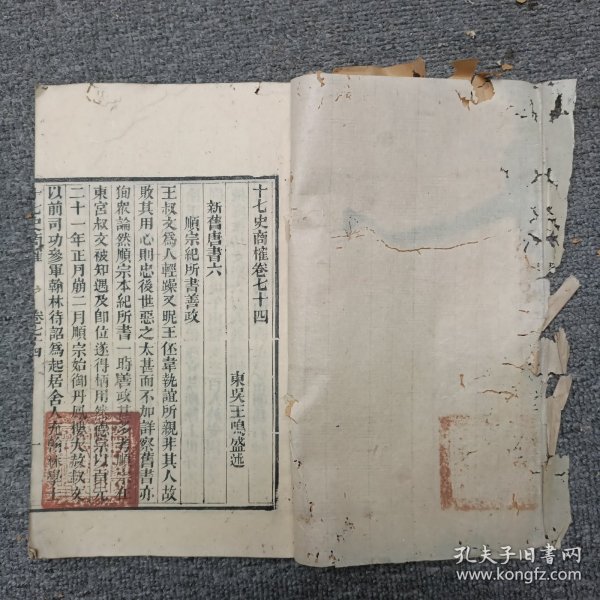 十七史商榷卷七十四
東吳王鳴盛述
新舊唐書六
順宗紀所書善政
王叔文爲人輕躁又昵王伾韋執誼所親非其人故
敗其用心則忠後世惡之太甚而不加詳察舊書亦
徇衆論然順宗本紀所書一時善政甚多考順宗在
東宮叔文被知遇及卽位遂得柄用
二十一年正月崩二月順宗始御丹鳳樓大赦叔文
以前司功參軍翰林待詔爲起居舍人充翰林學士
十七史商榷 卷七十四
孔夫子旧书网
www.kongfz.com